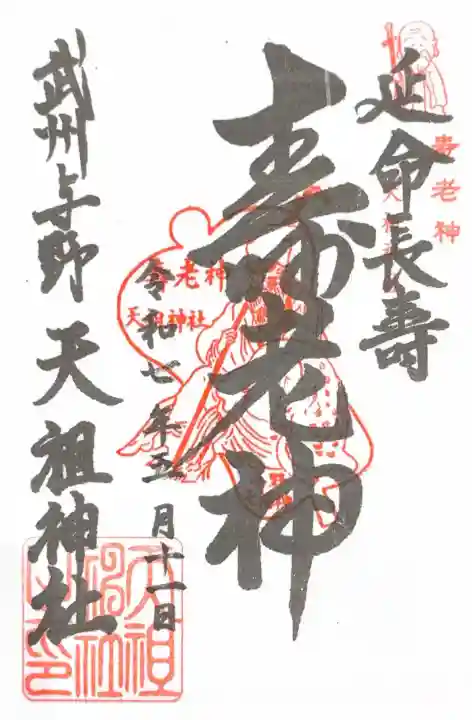 延命長壽
寿老神
寿老神
寿老神
天祖神社
令和七年五月十一日
武州与野 天祖神社
天祖
神社
之印